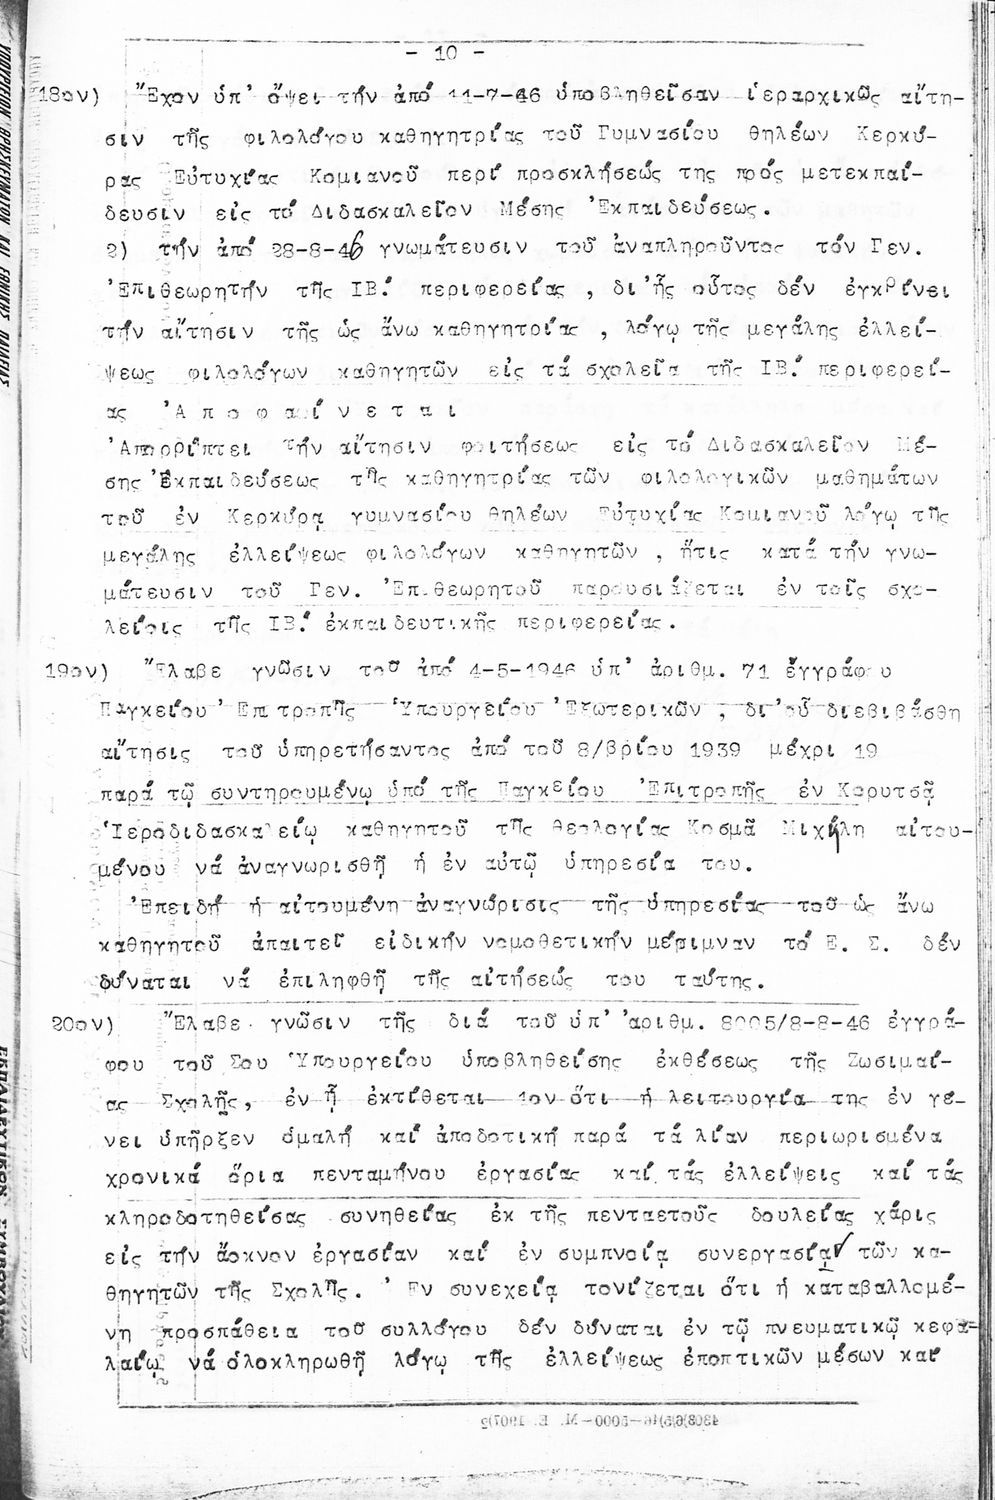 - 10 -
18ον) Ἔχον ὑπ' ὄψει τήν ἀπό 11-7-46 ὑποβληθεῖσαν ἱεραρχικῶς αἴτη-
σιν τῆς φιλολόγου καθηγητρίας τοῦ Γυμνασίου θηλέων Κερκύ-
ρας Εὐτυχίας Κομιανοῦ περί προσκλήσεώς της πρός μετεκπαί-
δευσιν εἰς τό Διδασκαλεῖον Μέσης Ἐκπαιδεύσεως.
2) τήν ἀπό 28-8-46 γνωμάτευσιν τοῦ ἀναπληροῦντος τόν Γεν.
Ἐπιθεωρητήν τῆς ΙΒ΄. περιφερείας , δι'ἧς οὗτος δέν ἐγκρίνει
τήν αἴτησιν τῆς ὡς ἄνω καθηγητρίας , λόγῳ τῆς μεγάλης ἐλλεί-
ψεως φιλολόγων καθηγητῶν εἰς τά σχολεῖα τῆς ΙΒ΄. περιφερεί-
ας Ἀ π ο φ α ί ν ε τ α ι
Ἀπορρίπτει τήν αἴτησιν φοιτήσεως εἰς τό Διδασκαλεῖον Μέ-
σης Ἐκπαιδεύσεως τῆς καθηγητρίας τῶν φιλολογικῶν μαθημάτων
τοῦ ἐν Κερκύρᾳ γυμνασίου θηλέων Εὐτυχίας Κομιανοῦ λόγῳ τῆς
μεγάλης ἐλλείψεως φιλολόγων καθηγητῶν , ἥτις κατά τήν γνω-
μάτευσιν τοῦ Γεν. Ἐπιθεωρητοῦ παρουσιάζεται ἐν τοῖς σχο-
λείοις τῆς ΙΒ΄. ἐκπαιδευτικῆς περιφερείας.
19ον) Ἔλαβε γνῶσιν τοῦ ἀπό 4-5-1946 ὑπ' ἀριθμ. 71 ἐγγράφου
Παγκείου Ἐπιτροπῆς Ὑπουργείου Ἐξωτερικῶν , δι'οὗ διεβιβάσθη
αἴτησις τοῦ ὑπηρετήσαντος ἀπό τοῦ 8/βρίου 1939 μέχρι 19
παρά τῷ συντηρουμένῳ ὑπό τῆς Παγκείου Ἐπιτροπῆς ἐν Κορυτσᾷ
Ἱεροδιδασκαλείῳ καθηγητοῦ τῆς θεολογίας Κοσμᾶ Μιχήλη αἰτου-
μένου νά ἀναγνωρισθῇ ἡ ἐν αὐτῷ ὑπηρεσία του.
Ἐπειδή ἡ αἰτουμένη ἀναγνώρισις τῆς ὑπηρεσίας τοῦ ὡς ἄνω
καθηγητοῦ ἀπαιτεῖ εἰδικήν νομοθετικήν μέριμναν τό Ε. Σ. δέν
δύναται νά ἐπιληφθῇ τῆς αἰτήσεώς του ταύτης.
20ον) Ἔλαβε γνῶσιν τῆς διά τοῦ ὑπ' ἀριθμ. 8005/8-8-46 ἐγγρά-
φου τοῦ Σου Ὑπουργείου ὑποβληθείσης ἐκθέσεως τῆς Ζωσιμαί-
ας Σχολῆς, ἐν ᾗ ἐκτίθεται 1ον ὅτι ἡ λειτουργία της ἐν γέ-
νει ὑπῆρξεν ὁμαλή καί ἀποδοτική παρά τά λίαν περιωρισμένα
χρονικά ὅρια πενταμήνου ἐργασίας καί τάς ἐλλείψεις καί τάς
κληροδοτηθείσας συνηθείας ἐκ τῆς πενταετοῦς δουλείας χάρις
εἰς τήν ἄοκνον ἐργασίαν καί ἐν συμπνοίᾳ συνεργασίαν τῶν κα-
θηγητῶν τῆς Σχολῆς. Ἐν συνεχείᾳ τονίζεται ὅτι ἡ καταβαλλομέ-
νη προσπάθεια τοῦ συλλόγου δέν δύναται ἐν τῷ πνευματικῷ κεφα-
λαίῳ νά ὁλοκληρωθῇ λόγῳ τῆς ἐλλείψεως ἐποπτικῶν μέσων καί